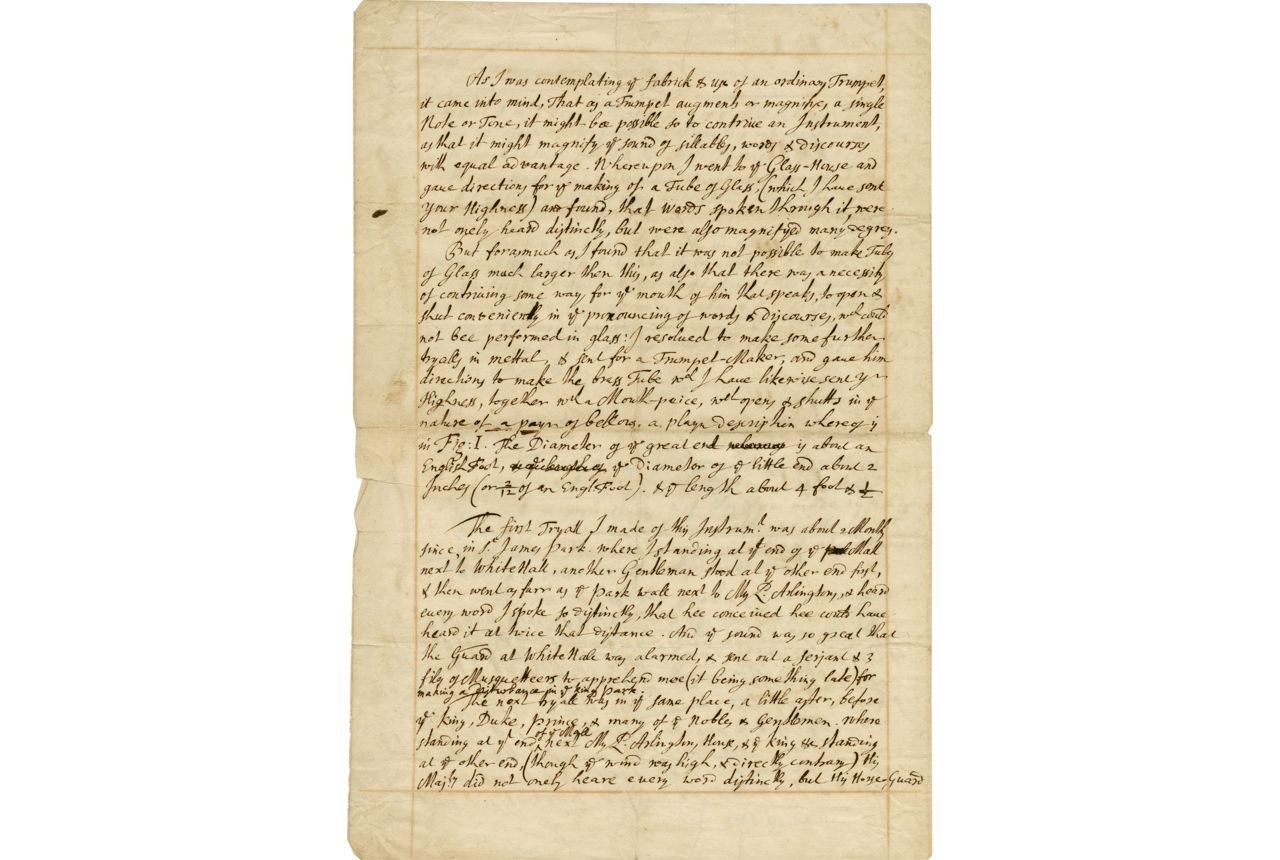 As I was contemplating yͤ fabrick & use of an ordinary Trumpet,
it came into mind, That as a Trumpet augments or magnifyes a single
Note or Tone, it might bee possible so to contrive an Instrument,
as that it might magnify yͤ sound of sillabls, words & discourses
with equal advantage. Whereupon I went to yͤ Glass-House and
gave directions for yͤ making of a Tube of Glass, (which I have sent
Your Highness) and found, that words spoken through it, were
not onely heard distinctly, but were also magnifyed many degrees.
But forasmuch as I found that it was not possible to make Tubes
of Glass much larger then this, as also that there was a necessity
of contriving some way, for yͤ mouth of him that speaks, to open &
shut conveniently in yͤ pronouncing of words & discourses, wͨh could
not bee performed in glass: I resolved to make some further
tryalls in mettal, & sent for a Trumpet-Maker, and gave him
directions to make the brass Tube wͨh I have likewise sent yͬ
Highness, together wͭh a Mouth-peice, wͨh opens & shutts in yͤ
nature of a payr of bellows. a playn description whereof is
in Fig: I. The Diameter of yͤ great end whereof is about an
English Foot, yͤ Diameter of yͤ little end about 2
Inches (or 2/12 of an Engl: Foot). & yͤ length about 4 foot & 1/2
The first Tryall I made of this Instrumͭ. was about 2 Months
since, in Sͭ. James Park. where I standing at yͤ end of yͤ Mall
next to White Hall, another Gentleman stood at yͤ other end first,
& then went as farr as yͤ Park wall next to My Lͩ. Arlingtons, & heard
every word I spoke so distinctly, that hee conceived hee could have
heard it at twice that distance. And yͤ sound was so great that
the Guard at White Hall was alarmed, & sent out a Serjant & 3
fils of Musquetteers to apprehend mee (it being something late) for
making a disturbance in yͤ kings Park.
The next tryall was in yͤ same place, a little after, before
yͤ King, Duke, Prince, & many of yͤ Nobles & Gentlemen. Where
standing at yͤ end of yͤ Mall next My Lͩ. Arlingtons House, & yͤ King &c standing
at yͤ other end, (though yͤ wind was high, & directly contrary) His
Majͭy did not onely heare every word distinctly, but His Horse-Guard